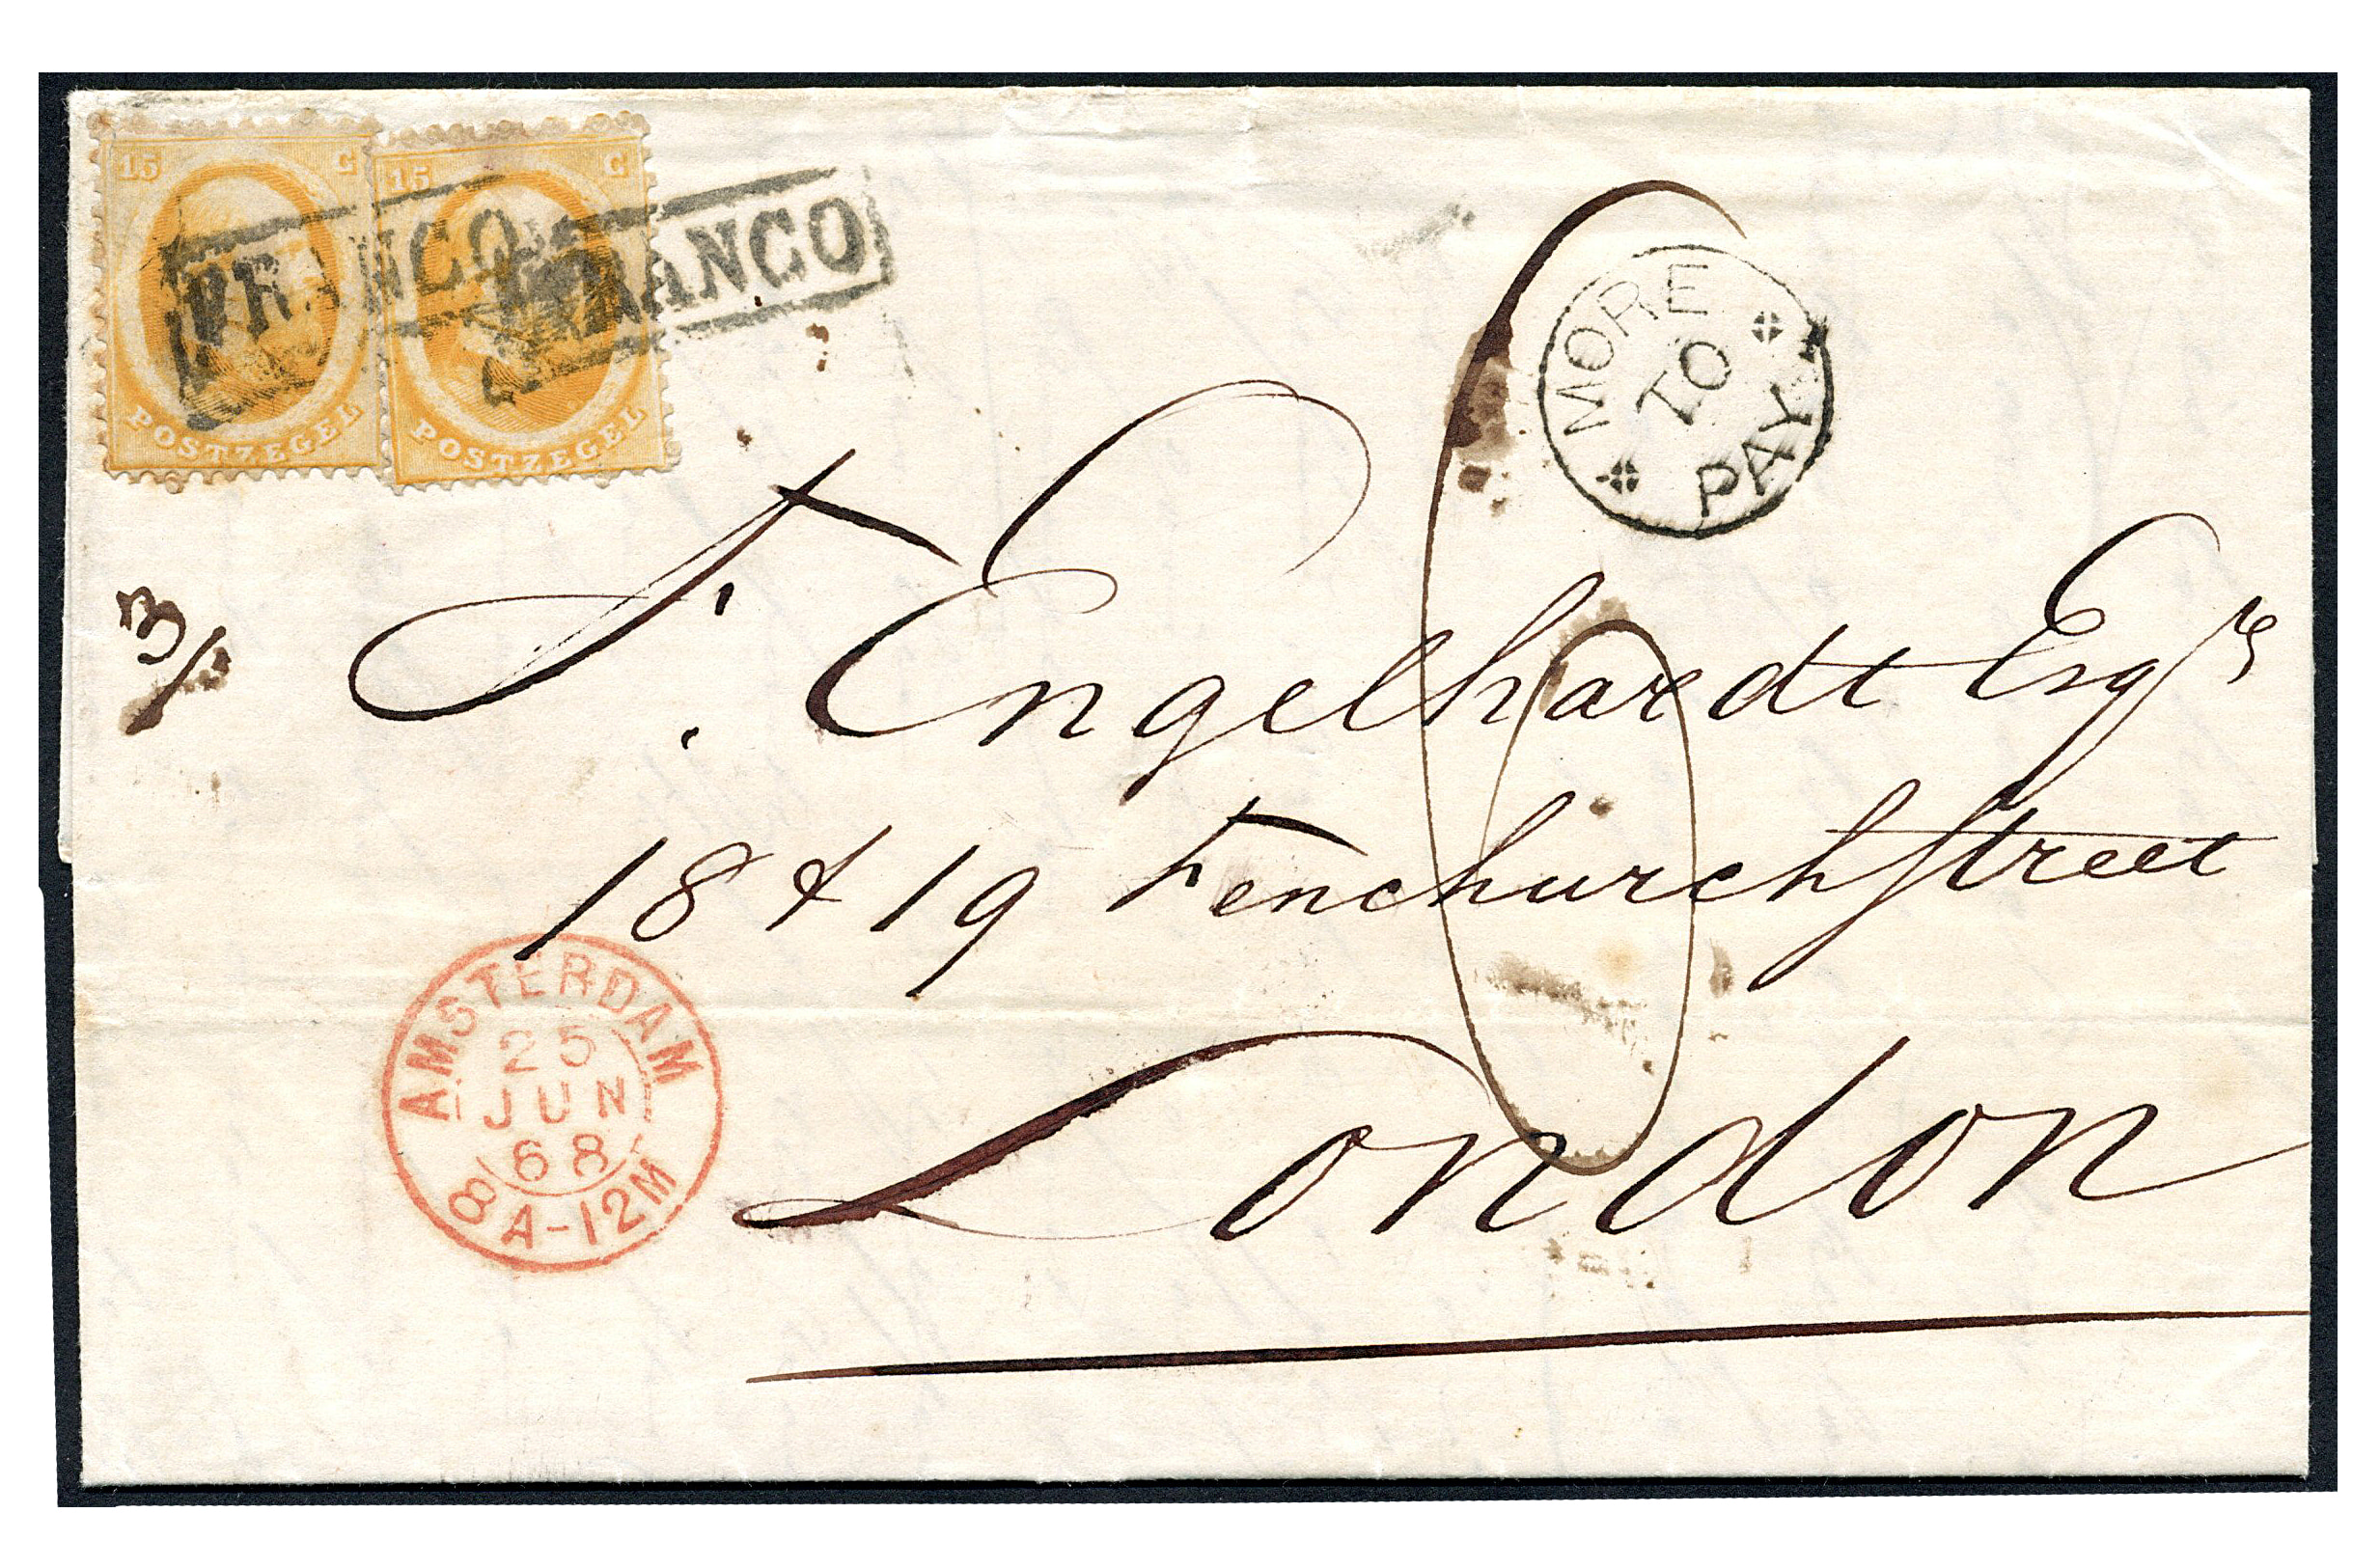 15 C
POSTZEGEL
15 C
POSTZEGEL
FRANCO
FRANCO
MORE
TO
PAY
3/
F. Engelhardt Esqre
18 & 19 Fenchurchstreet
London
AMSTERDAM
25
JUN
68
8A-12M